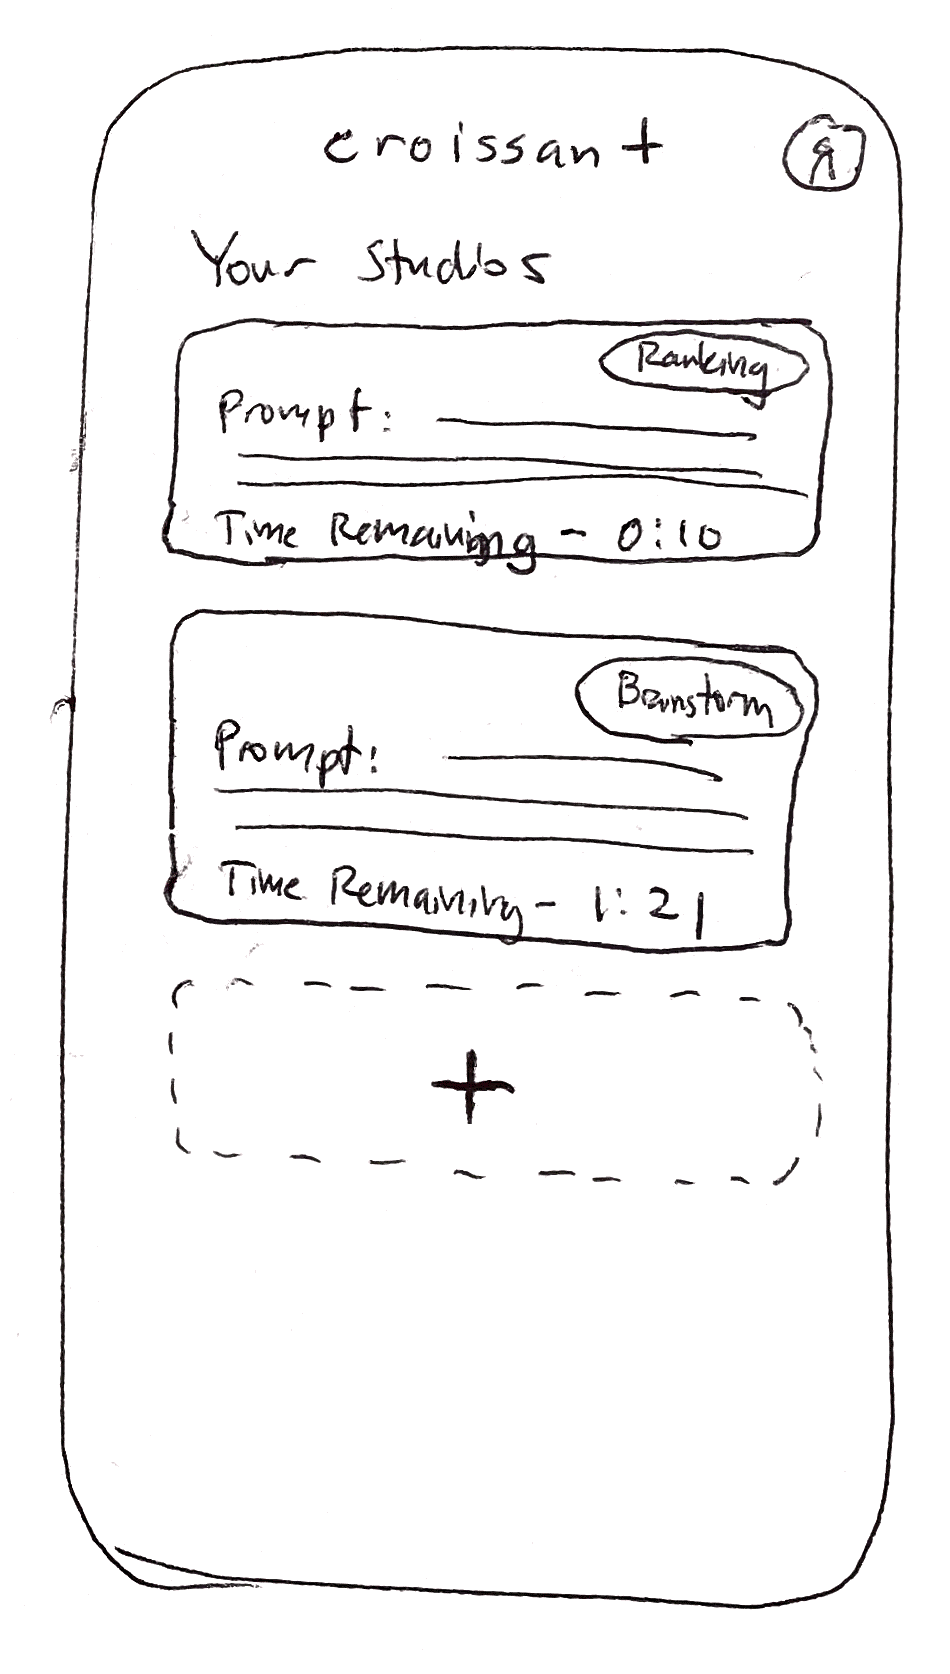 croissant
Your Studios
Ranking
Prompt:
Time Remaining - 0:10
Brainstorm
Prompt:
Time Remaining - 1:21
+